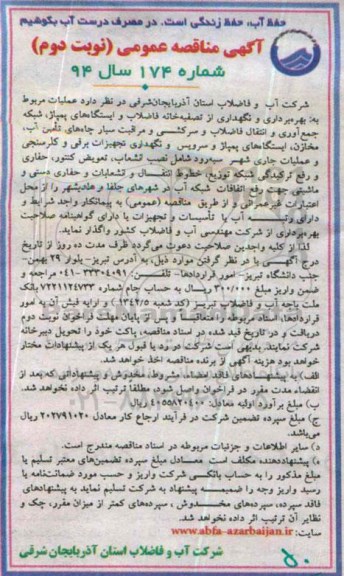 حفظ آب، حفظ زندگی است. در مصرف درست آب بکوشیم
آگهی مناقصه عمومی (نوبت دوم)
شماره ۱۷۴ سال ۹۴
شرکت آب و فاضلاب استان آذربایجان‌شرقی در نظر دارد عملیات مربوط
به: بهره‌برداری و نگهداری از تصفیه‌خانه فاضلاب و ایستگاه‌های پمپاژ، شبکه
جمع‌آوری و انتقال فاضلاب و سرکشی و مراقبت سیار چاه‌های تأمین آب،
مخازن، ایستگاه‌های پمپاژ و سرویس و نگهداری تجهیزات برقی و کلرسنجی
و عملیات جاری شهر سیه‌رود شامل نصب انشعاب، تعویض کنتور، حفاری
و رفع ترکیدگی شبکه توزیع، خطوط انتقال و انشعابات و حفاری دستی و
ماشینی جهت رفع اتفاقات شبکه آب در شهرهای جلفا و هادیشهر را از محل
اعتبارات غیرعمرانی از طریق مناقصه (عمومی) به پیمانکار واجد شرایط و
دارای رتبه آب یا تأسیسات و تجهیزات یا دارای گواهینامه صلاحیت
بهره‌برداری از شرکت مهندسی آب و فاضلاب کشور واگذار نماید.
لذا از کلیه واجدین صلاحیت دعوت می‌گردد ظرف مدت ده روز از تاریخ
درج آگهی با در نظر گرفتن موارد ذیل، به آدرس تبریز- بلوار ۲۹ بهمن-
جنب دانشگاه تبریز- امور قراردادها- تلفن: ۳۳۳۰۴۰۹۱-۰۴۱ مراجعه و
ضمن واریز مبلغ ۳۰۰/۰۰۰ ریال به حساب جام شماره بانک
ملت باجه آب و فاضلاب تبریز (کد شعبه ۱۳۴۲/۵) و ارایه فیش آن به امور
قراردادها، اسناد مربوطه را متعاقب درج آگهی و تا پایان مهلت فراخوان نوبت دوم
دریافت و در تاریخ قید شده در اسناد مناقصه، پاکت خود را تحویل دبیرخانه
شرکت نمایند. بدیهی است شرکت در رد یا قبول هر یک از پیشنهادات مختار
خواهد بود هزینه آگهی از برنده مناقصه اخذ خواهد شد.
الف) به پیشنهادهای فاقد امضاء، مشروط، مخدوش و پیشنهاداتی که بعد از
انقضاء مدت مقرر در فراخوان واصل شود، مطلقا ترتیب اثر داده نخواهد شد.
ب) مبلغ برآورد اولیه معادل ریال
ج) مبلغ سپرده تضمین شرکت در فرآیند ارجاع کار معادل ۲۰۲۷۹۱۰۲۰ ریال
می‌باشد.
د) سایر اطلاعات و جزئیات مربوطه در اسناد مناقصه مندرج است.
ه) پیشنهاددهنده مکلف است معادل مبلغ سپرده تضمین‌های معتبر تسلیم یا
مبلغ مذکور را به حساب بانکی شرکت واریز و حسب مورد ضمانت‌نامه یا
رسید واریز وجه را ضمیمه پیشنهاد به شرکت تسلیم نماید به پیشنهادهای
فاقد سپرده، سپرده‌های مخدوش، سپرده‌های کمتر از میزان مقرر، چک و
نظایر آن ترتیب اثر داده نخواهد شد.
سایت: www.abfa-azarbaijan.ir
شرکت آب و فاضلاب استان آذربایجان شرقی